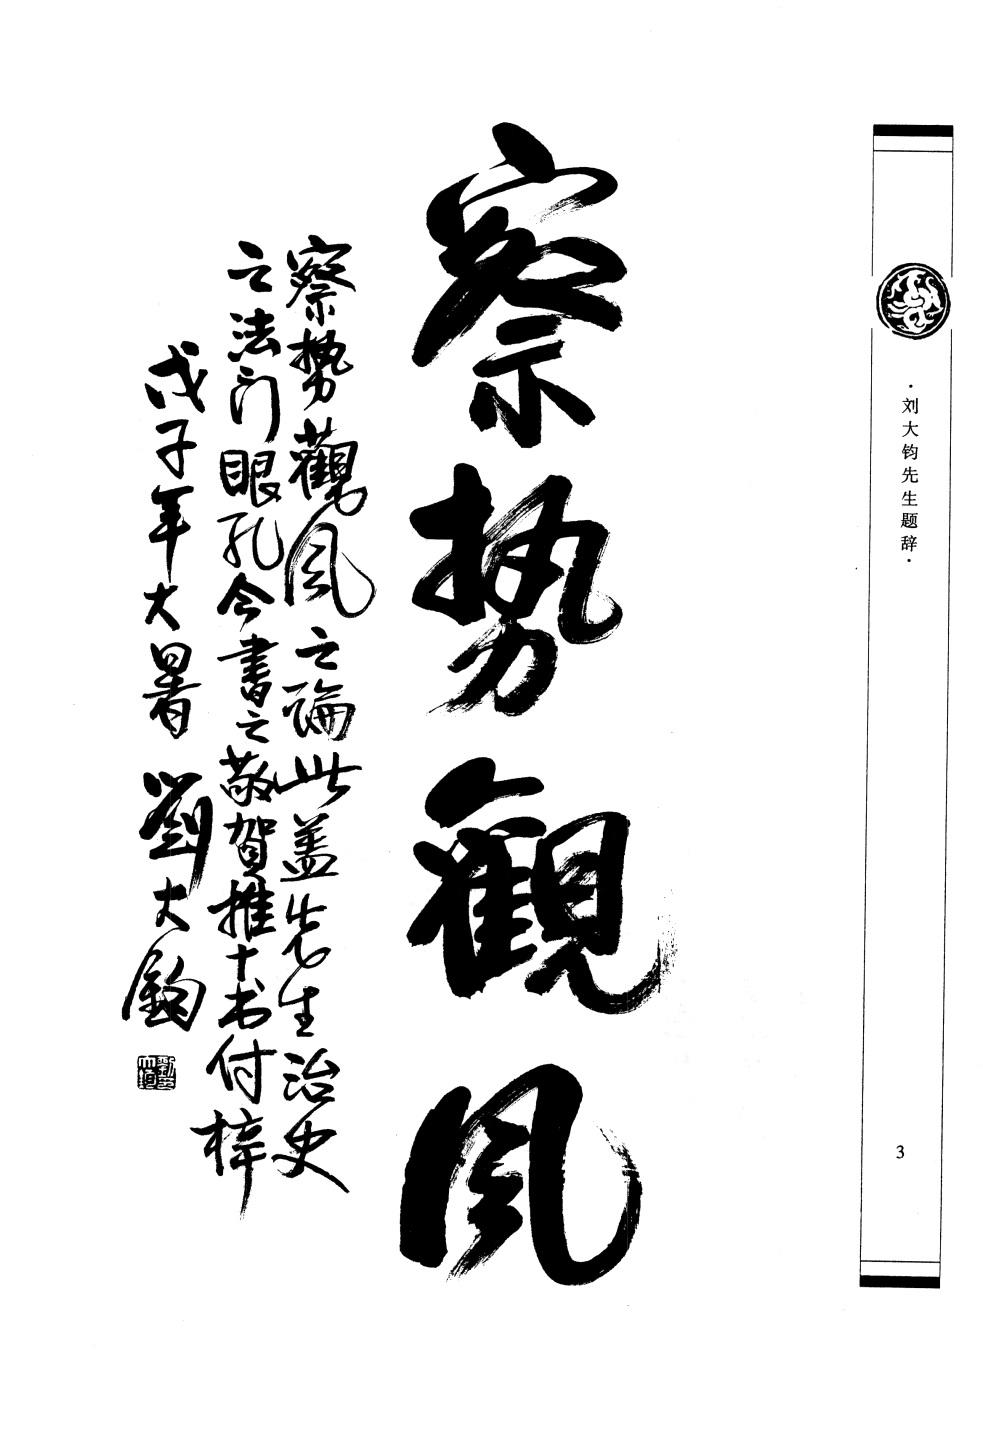 ·刘大钧先生题辞·
3
察势觀风
察势觀风之论此盖先生治史
之法门眼孔今书之敬贺推十书付梓
戊子年大暑 劉大鈞